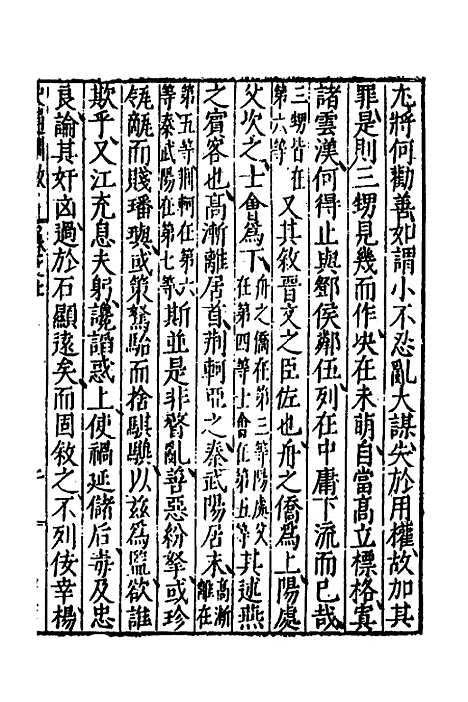 尤將何勸善如謂小不忍亂大謀失於用權故加其
罪是則三甥見幾而作决在未萌自當高立標格寘
諸雲漢何得止與鄧侯鄰伍列在中庸下流而已哉
三甥皆在第六等又其敘晉文之臣佐也舟之僑爲上陽處
父次之士會爲下舟之僑在第三等陽處父在第四等士會在第五等其述燕
之賓客也高漸離居首荆軻亞之秦武陽居末高漸離在
第五等荆軻在第六等秦武陽在第七等斯並是非瞀亂善惡紛拏或珍
瓴甋而賤璠璵或策駑駘而捨騏驥以茲爲監欲誰
欺乎又江充息夫躬讒謟惑上使禍延儲后毒及忠
良論其奸凶過於石顯遠矣而固敘之不列佞幸楊